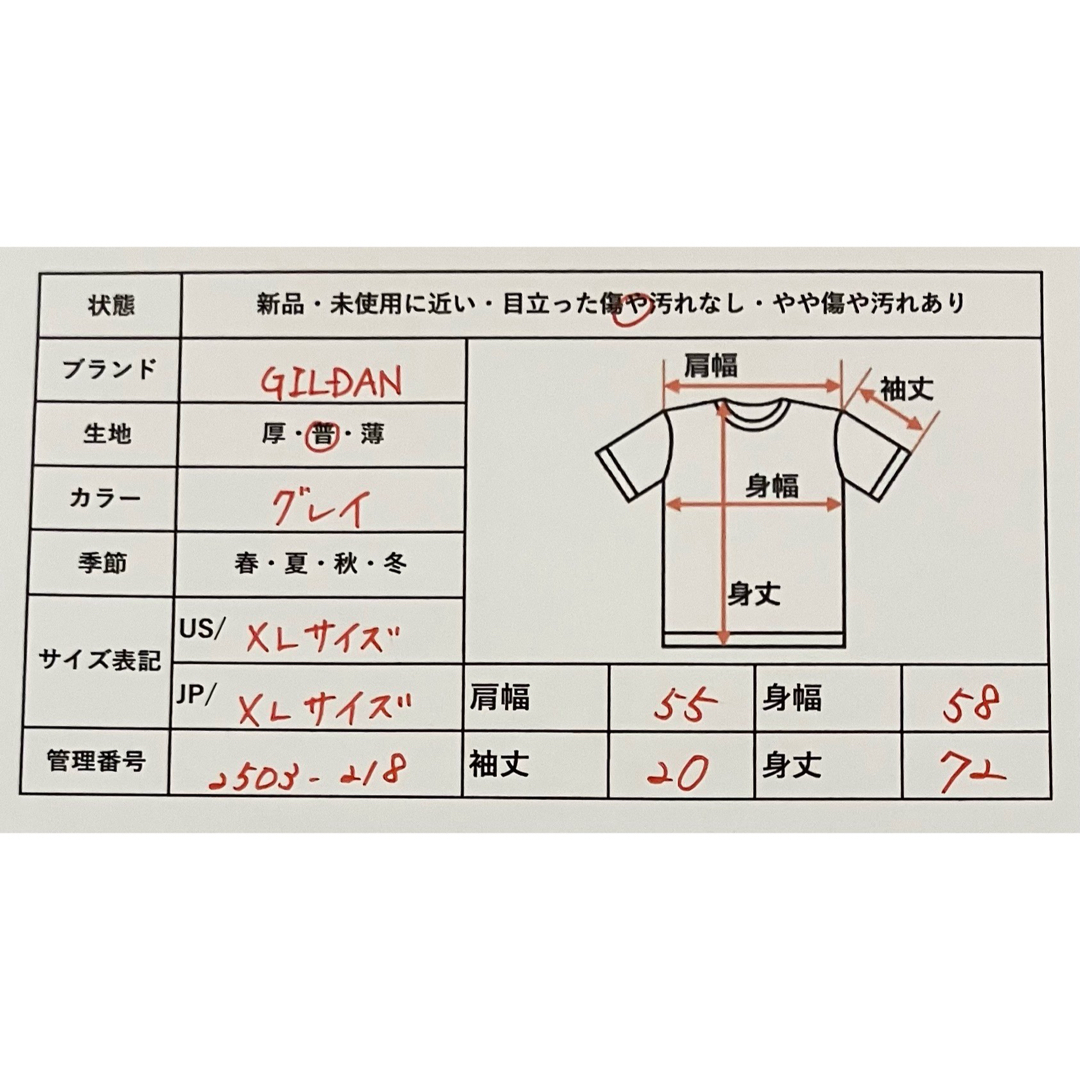 状態 新品・未使用に近い・目立った傷や汚れなし・やや傷や汚れあり
ブランド GILDAN
生地 厚・普・薄
カラー グレイ
季節 春・夏・秋・冬
サイズ表記
US/ XLサイズ
JP/ XLサイズ
管理番号 2503-218
肩幅
袖丈
身幅
身丈
肩幅 55 身幅 58
袖丈 20 身丈 72